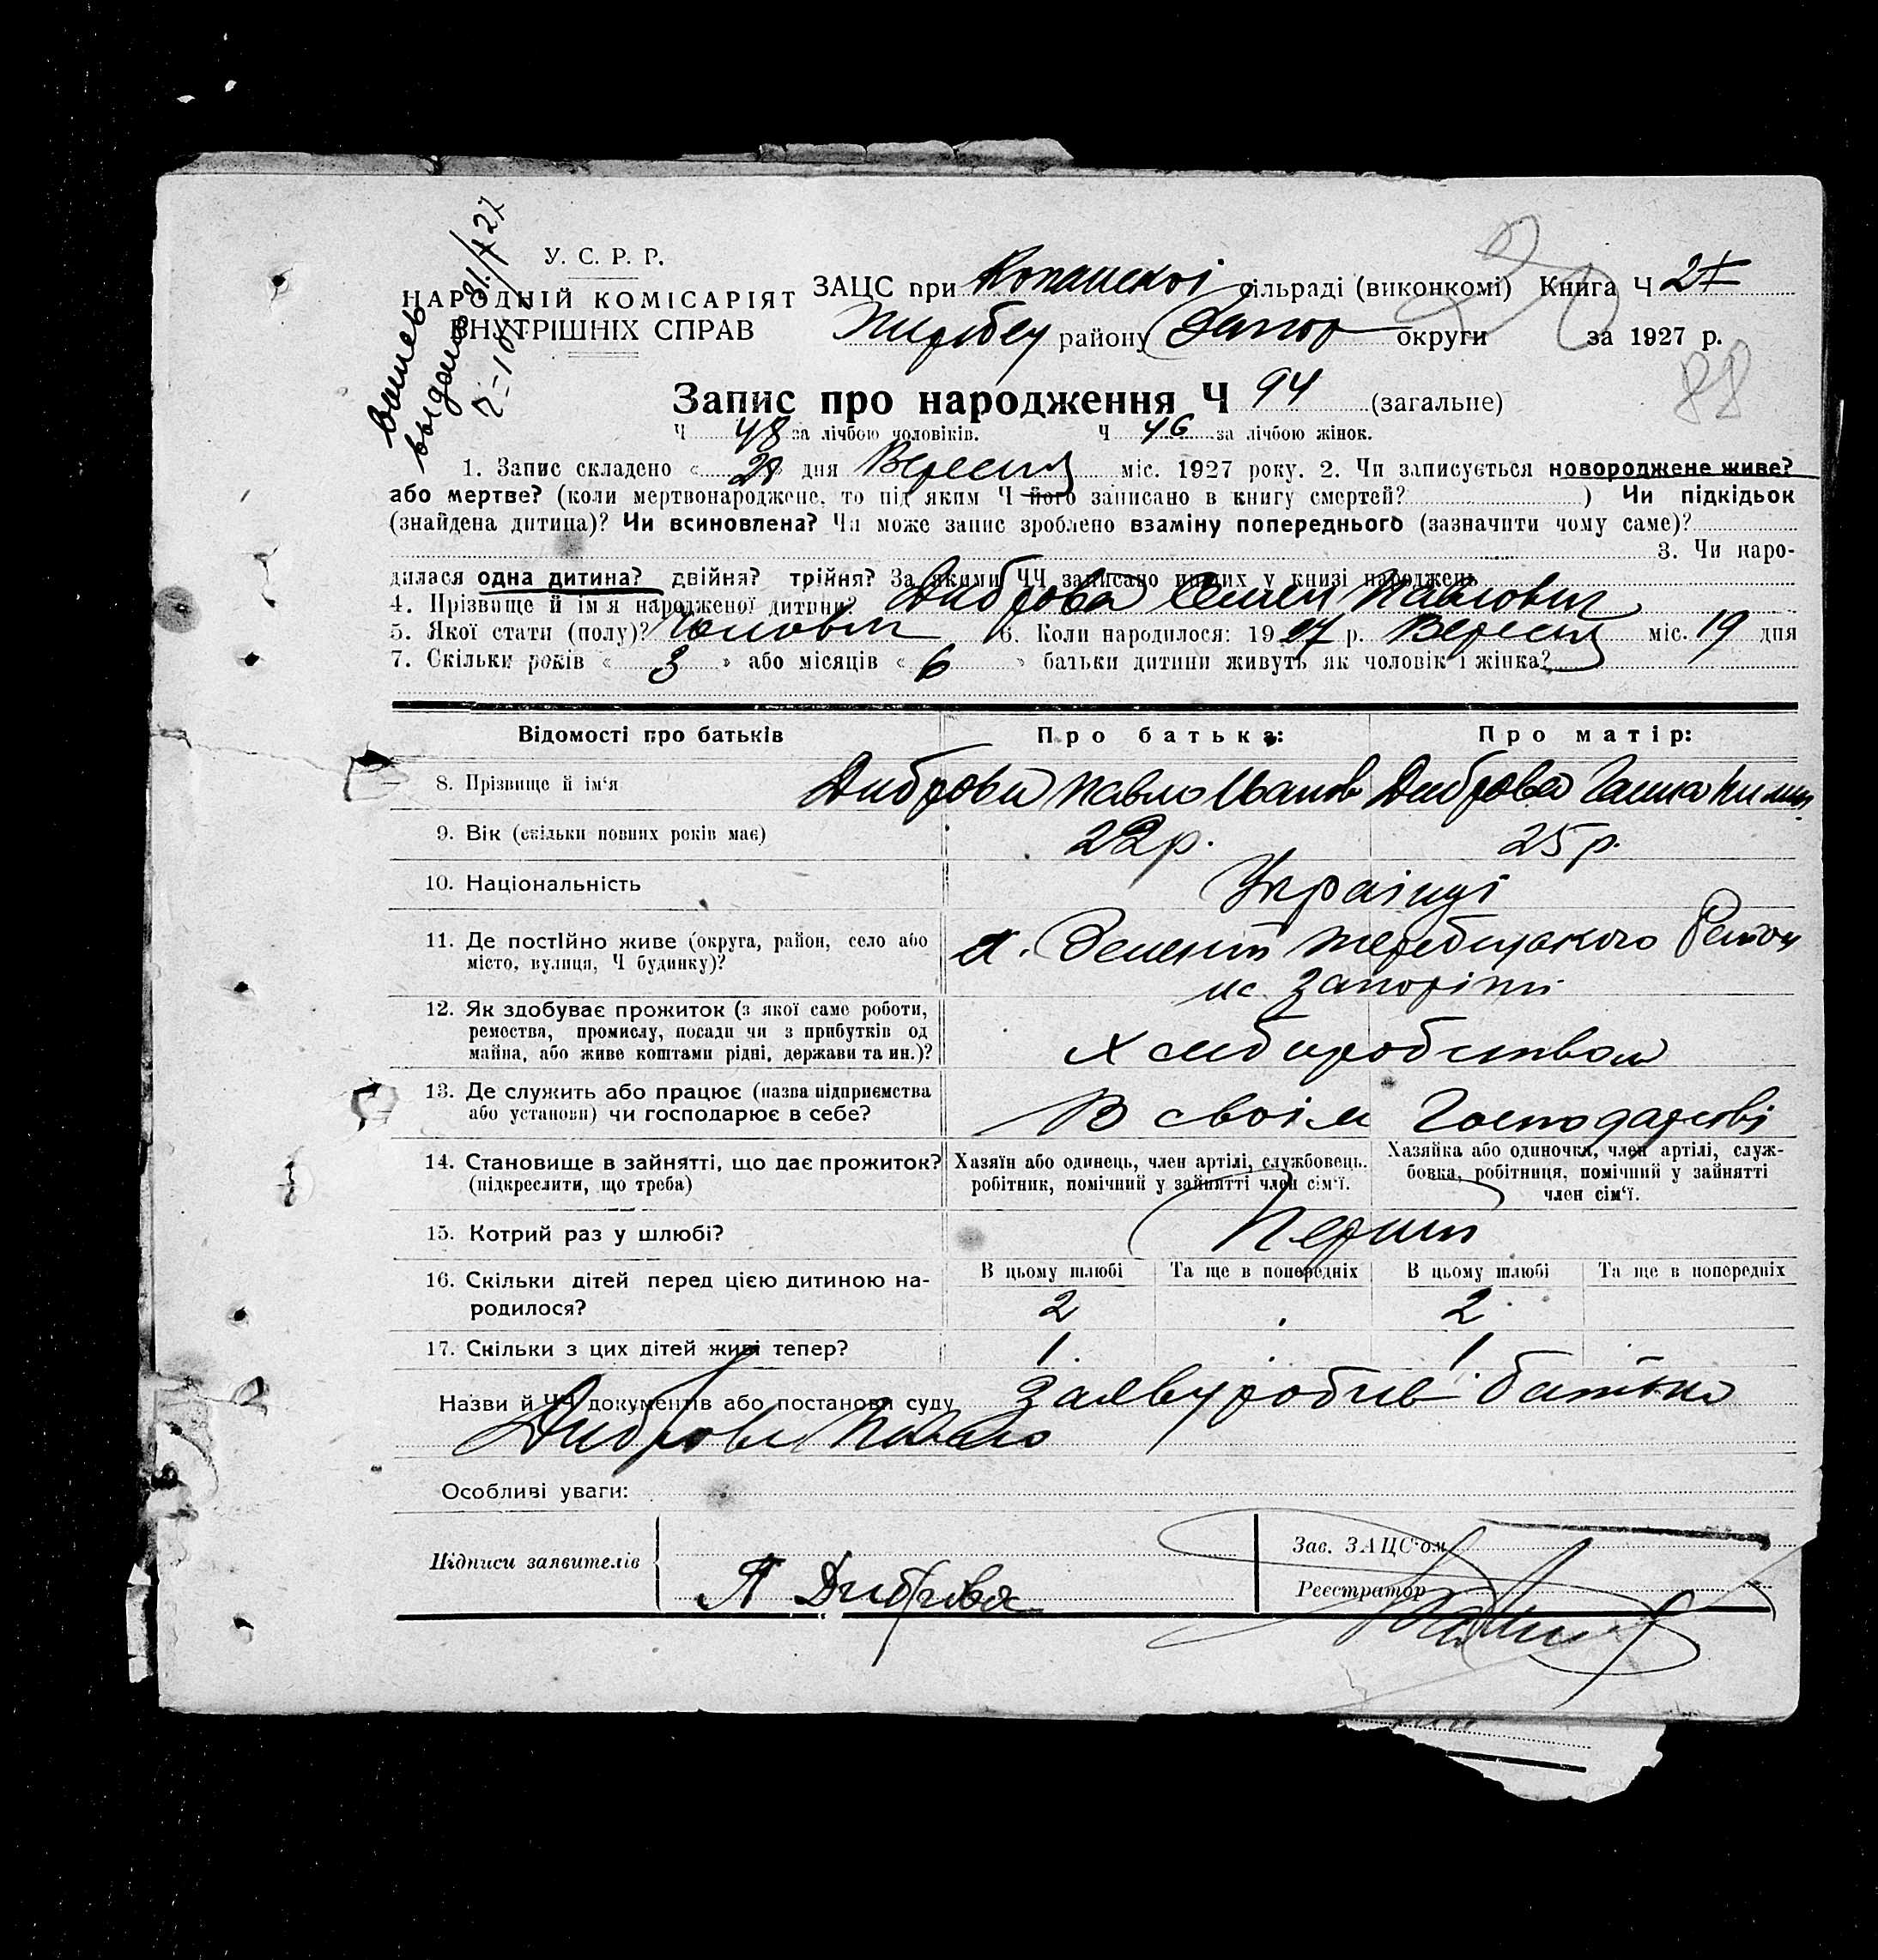 У. С. Р. Р.
НАРОДНІЙ КОМІСАРІЯТ
ВНУТРІШНІХ СПРАВ
ЗАЦС при Копанскої сільраді (виконкомі) Книга Ч 2
району Запор округи за 1927 р.
88
Запис про народження Ч 94 (загальне)
Ч 48 за лічбою чоловіків. Ч 46 за лічбою жінок.
1. Запис складено « » дня Вересня міс. 1927 року. 2. Чи записується новороджене живе?
або мертве? (коли мертвонароджене, то під яким Ч його записано в книгу смертей? ) Чи підкідьок
(знайдена дитина)? Чи всиновлена? Чи може запис зроблено взаміну попереднього (зазначити чому саме)?
3. Чи наро-
дилася одна дитина? двійня? трійня? За якими ЧЧ записано инших у книзі народжень
4. Прізвище й ім'я народженої дитини? Диброва Семен Павлович
5. Якої стати (полу)? Чоловіч 6. Коли народилося: 1927 р. Вересня міс. 19 дня
7. Скільки років « 3 » або місяців « 6 » батьки дитини живуть як чоловік і жінка?
Відомості про батьків
Про батька:
Про матір:
8. Прізвище й ім'я
Диброва Павло Іванов
Диброва Ганна
9. Вік (скільки повних років має)
22р.
25р.
10. Національність
Українці
11. Де постійно живе (округа, район, село або
місто, вулиця, Ч будинку)?
х. Зелений Жеребецького Району
на Запоріжі
12. Як здобуває прожиток (з якої саме роботи,
ремества, промислу, посади чи з прибутків од
майна, або живе коштами рідні, держави та ин.)?
Хлибиробством
13. Де служить або працює (назва підприємства
або установи) чи господарює в себе?
В своім Господарстві
14. Становище в зайнятті, що дає прожиток?
(підкреслити, що треба)
Хазяїн або одинець, член артілі, службовець.
робітник, помічний у зайнятті член сім'ї.
Хазяйка або одиночка, член артілі, служ-
бовка, робітниця, помічний у зайнятті
член сім'ї.
15. Котрий раз у шлюбі?
Перший
16. Скільки дітей перед цією дитиною на-
родилося?
В цьому шлюбі
Та ще в попередніх
В цьому шлюбі
Та ще в попередніх
2
2
17. Скільки з цих дітей живі тепер?
1
1
Назви й ЧЧ документів або постанови суду Заяву робив батько
Диброва Павло
Особливі уваги:
Підписи заявителів
П Диброва
Зав. ЗАЦС'ом
Реєстратор